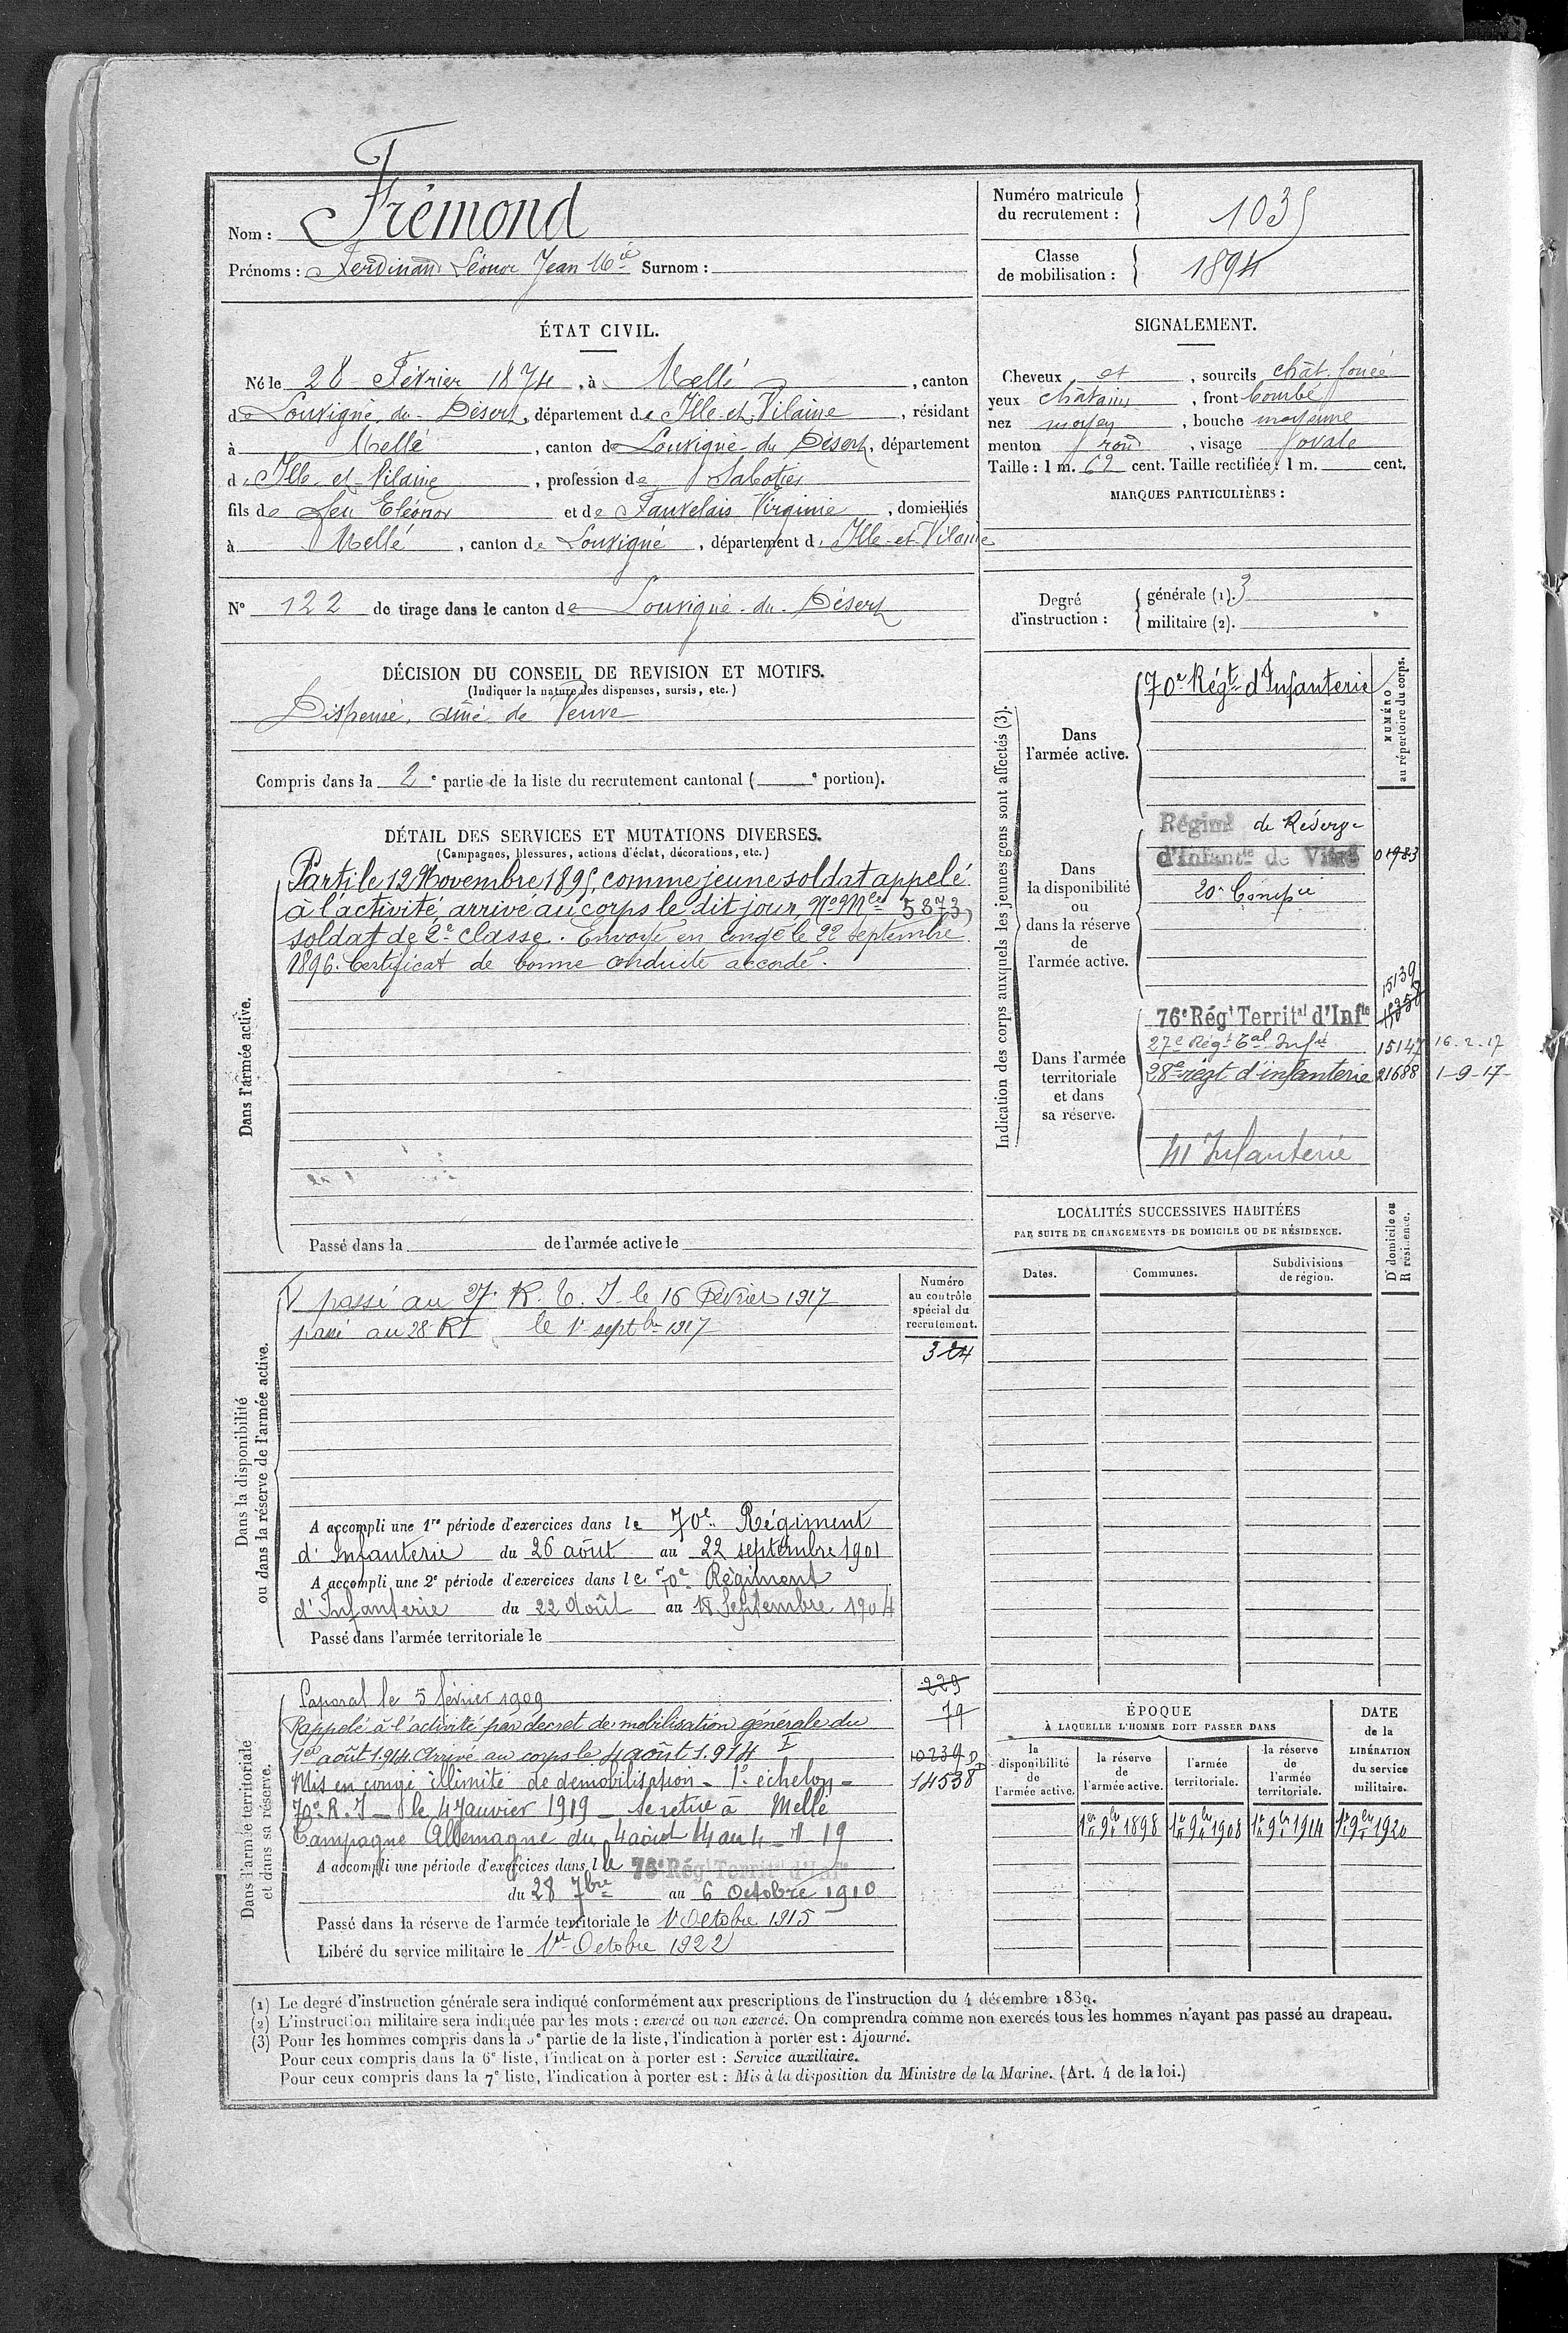 Nom : Frémond
Prénoms : Ferdinand Léonor Jean Mie Surnom :
Numéro matricule du recrutement : 1035
Classe de mobilisation : 1894
ÉTAT CIVIL.
Né le 28 Février 1874, à Mellé, canton
de Louvigné-du-Désert, département de Ille-et-Vilaine, résidant
à Mellé, canton de Louvigné-du Désert, département
d Ille-et-Vilaine, profession de Sabotier
fils de feu Eléonor et de Fauvelais Virginie, domiciliés
à Mellé, canton de Louvigné, département d Ille-et-Vilaine
N° 122 de tirage dans le canton de Louvigné-du-Désert
SIGNALEMENT.
Cheveux et, sourcils chât. foncé
yeux châtains, front bombé
nez moyen, bouche moyenne
menton rond, visage ovale
Taille : 1 m. 62 cent. Taille rectifiée : 1 m. cent.
MARQUES PARTICULIÈRES :
Degré d'instruction :
générale (1). 3
militaire (2).
DÉCISION DU CONSEIL DE REVISION ET MOTIFS.
(Indiquer la nature des dispenses, sursis, etc.)
Dispensé. aîné de Veuve
Compris dans la 2e partie de la liste du recrutement cantonal ( e portion).
DÉTAIL DES SERVICES ET MUTATIONS DIVERSES.
(Campagnes, blessures, actions d'éclat, décorations, etc.)
Dans l'armée active.
Parti le 12 Novembre 1895, comme jeune soldat appelé
à l'activité, arrivé au corps le dit jour, No Mle 5873,
soldat de 2e classe. Envoyé en congé le 22 Septembre
1896. Certificat de bonne conduite accordé.
Passé dans la de l'armée active le
Indication des corps auxquels les jeunes gens sont affectés (3).
NUMÉRO au répertoire du corps.
Dans l'armée active.
70e Régt d'Infanterie
Dans la disponibilité ou dans la réserve de l'armée active.
Régimt de Réserve
d'Infantie de Vitré 01983
20e Compie
Dans l'armée territoriale et dans sa réserve.
15139
76e Régt Territal d'Infie
27e Régt Tal Infie 15147 16-2-17
28e régt d'infanterie 21688 1-9-17-
41 Infanterie
LOCALITÉS SUCCESSIVES HABITÉES
PAR SUITE DE CHANGEMENTS DE DOMICILE OU DE RÉSIDENCE.
Dates. Communes. Subdivisions de région. D domicile ou R résidence.
Dans la disponibilité ou dans la réserve de l'armée active.
Numéro au contrôle spécial du recrutement.
passé au 27e R. T. I le 16 Février 1917
passé au 28 RI le 1r septbre 1917
324
A accompli une 1re période d'exercices dans le 70e Régiment
d'Infanterie du 26 août au 22 septembre 1901
A accompli une 2e période d'exercices dans le 70e Régiment
d'Infanterie du 22 Août au 18 Septembre 1904
Passé dans l'armée territoriale le
Dans l'armée territoriale et dans sa réserve.
Caporal le 5 février 1909
Rappelé à l'activité par décret de mobilisation générale du
1er août 1914. Arrivé au corps le 4 août 1.914
Mis en congé illimité de démobilisation - 1r échelon -
70e R. I - le 4 Janvier 1919 - se retire à Mellé
Campagne Allemagne du 4 août 14 au 4-1-19
229
79
10239
14538
A accompli une période d'exercices dans le 76e Régt Territal d'Infie
du 28 7bre au 6 octobre 1910
Passé dans la réserve de l'armée territoriale le 1r Octobre 1915
Libéré du service militaire le 1er Octobre 1922
ÉPOQUE
À LAQUELLE L'HOMME DOIT PASSER DANS
la disponibilité de l'armée active. la réserve de l'armée active. l'armée territoriale. la réserve de l'armée territoriale.
DATE de la LIBÉRATION du service militaire.
1er 9bre 1898 1er 9bre 1908 1er 9bre 1914 1er 9bre 1920
(1) Le degré d'instruction générale sera indiqué conformément aux prescriptions de l'instruction du 4 décembre 1889.
(2) L'instruction militaire sera indiquée par les mots : exercé ou non exercé. On comprendra comme non exercés tous les hommes n'ayant pas passé au drapeau.
(3) Pour les hommes compris dans la 5e partie de la liste, l'indication à porter est : Ajourné.
Pour ceux compris dans la 6e liste, l'indication à porter est : Service auxiliaire.
Pour ceux compris dans la 7e liste, l'indication à porter est : Mis à la disposition du Ministre de la Marine. (Art. 4 de la loi.)